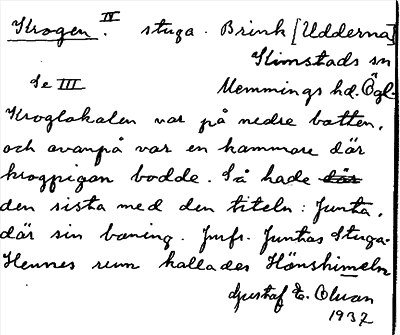 Krogen. IV stuga. Brink [Udderna]
Kimstads sn
Se III Memmings hd. Ögl.
Kroglokalen var på nedre botten,
och ovanpå var en kammare där
krogpigan bodde. Så hade där
den sista med den titeln: Juntha,
där sin boning. Jmfr. Junthas Stuga.
Hennes rum kallades Hönshimeln
Gustaf E. Olvan
1937